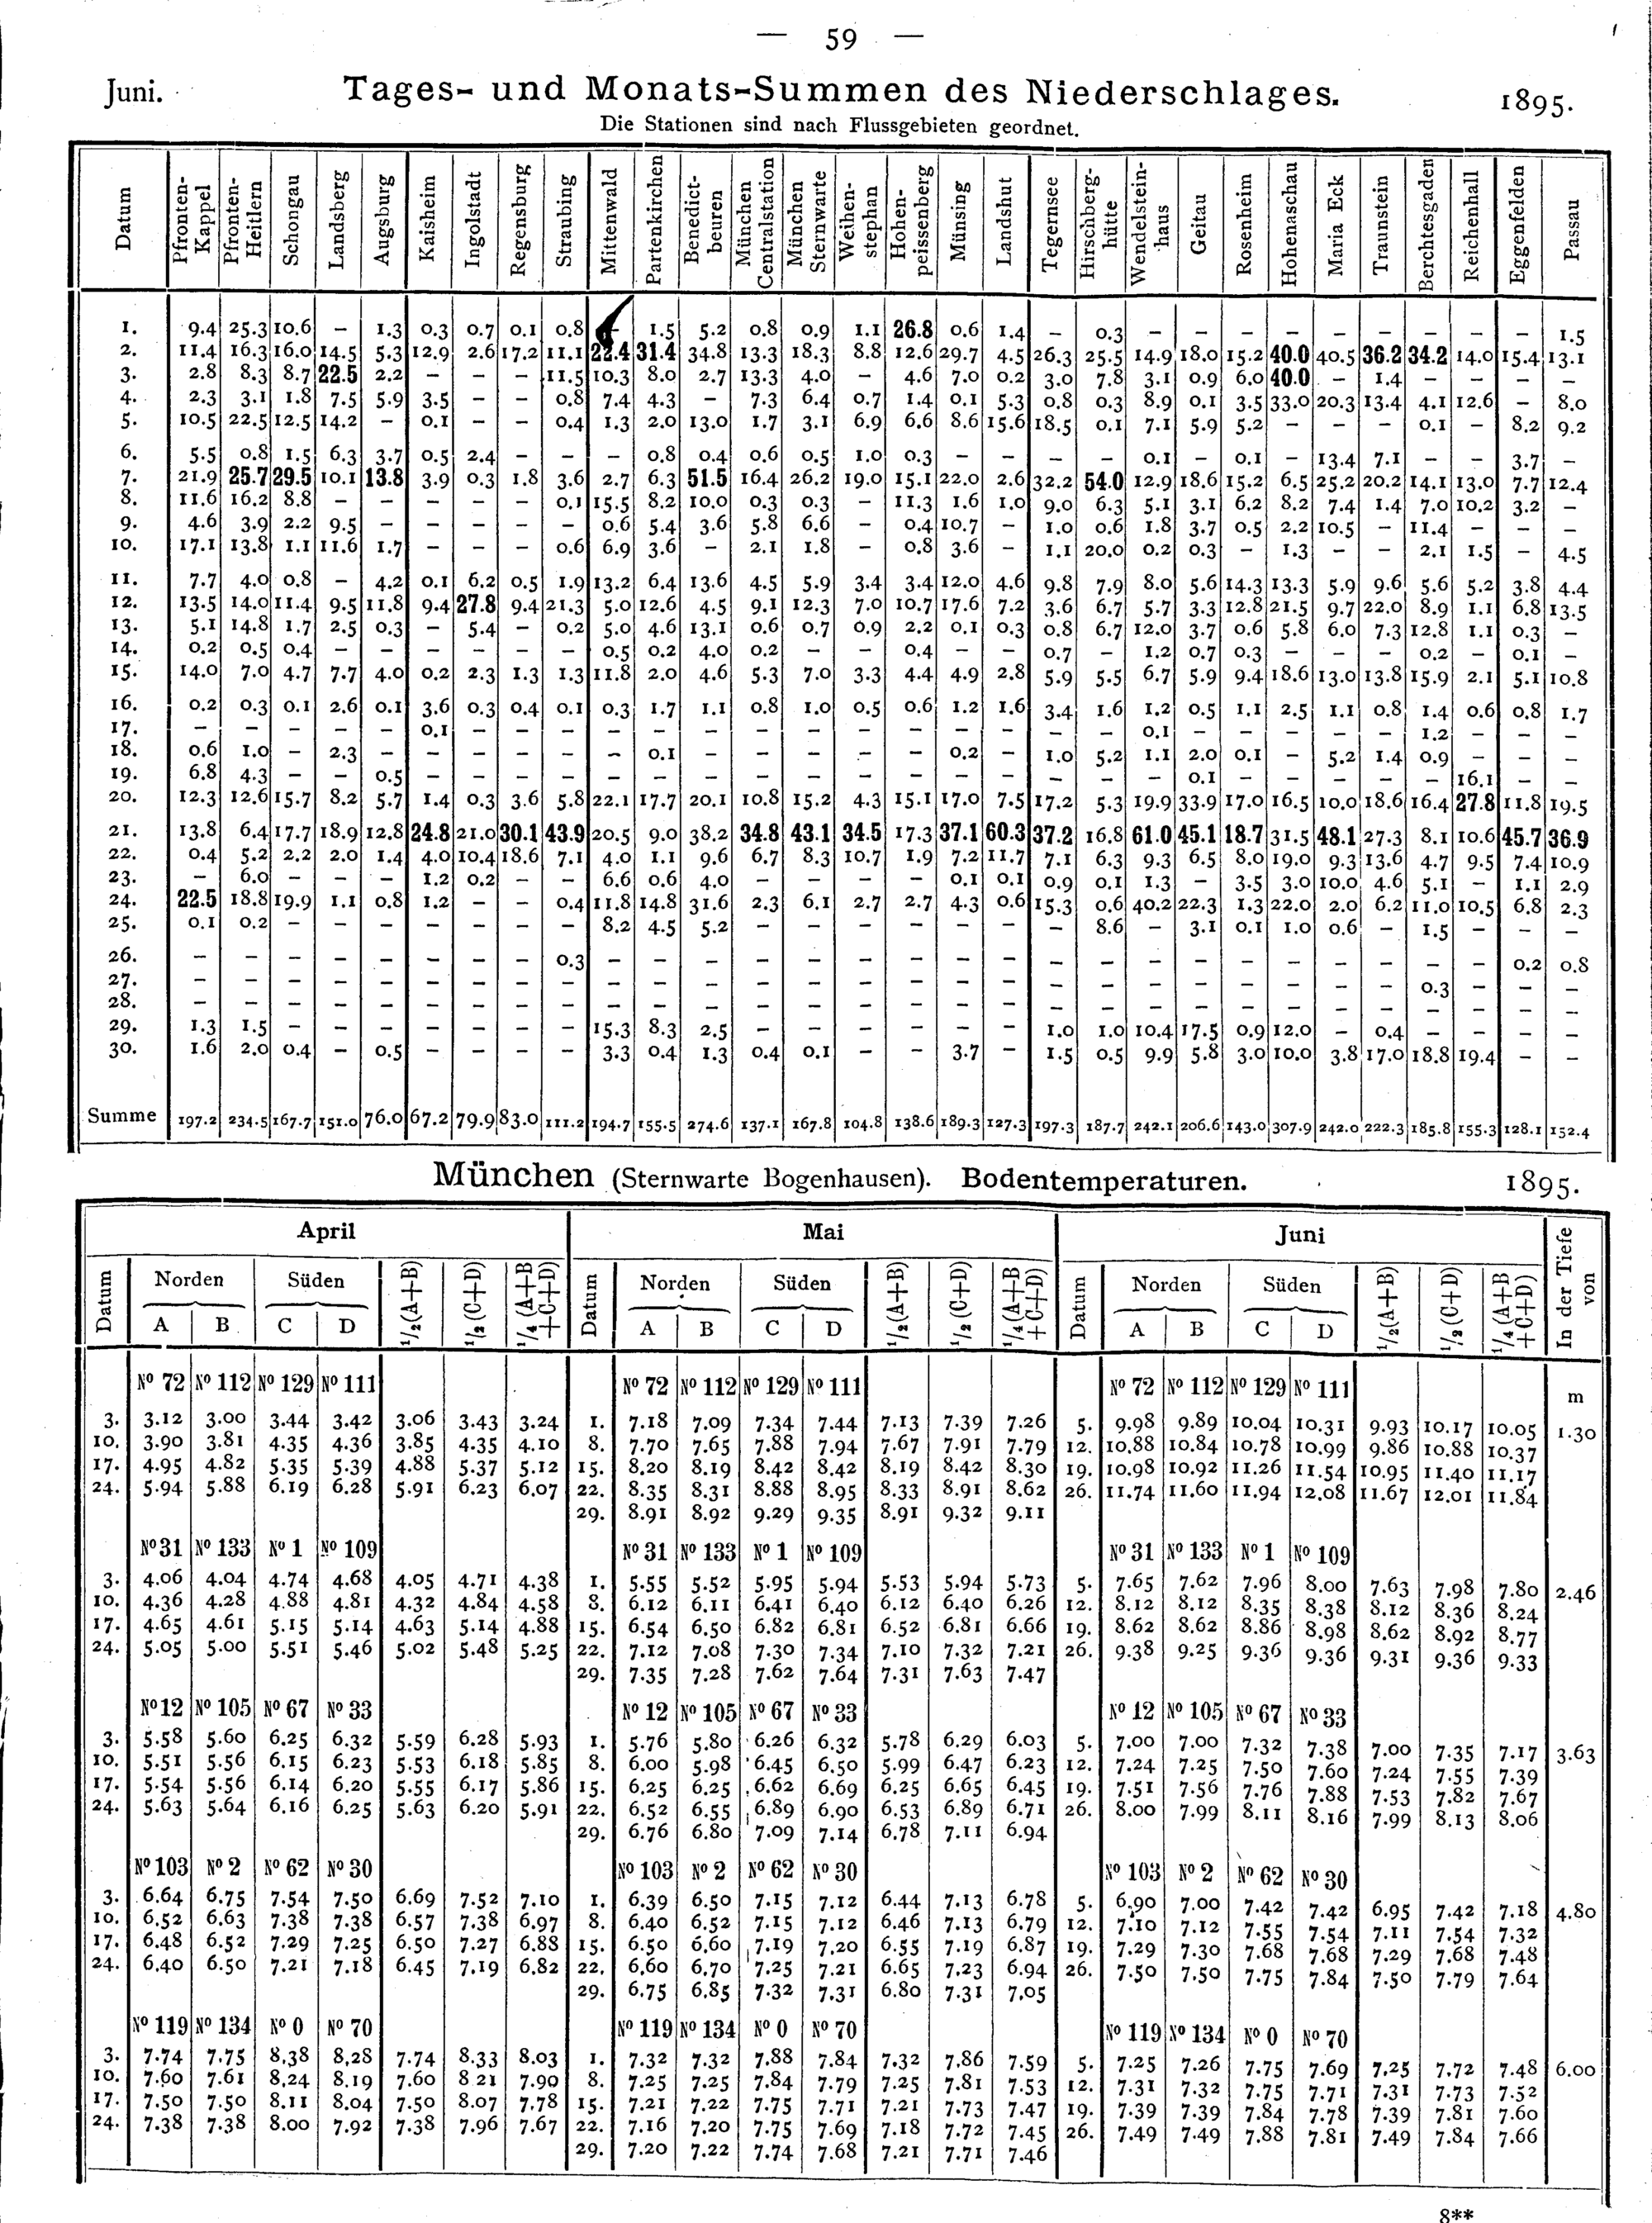 — 59 —
Juni. Tages- und Monats-Summen des Niederschlages. 1895.
Die Stationen sind nach Flussgebieten geordnet.
Datum Pfronten-Kappel Pfronten-Heitlern Schongau Landsberg Augsburg Kaisheim Ingolstadt Regensburg Straubing Mittenwald Partenkirchen Benedict-beuren München Centralstation München Sternwarte Weihen-stephan Hohen-peissenberg Münsing Landshut Tegernsee Hirschberg-hütte Wendelstein-haus Geitau Rosenheim Hohenaschau Maria Eck Traunstein Berchtesgaden Reichenhall Eggenfelden Passau
1. 9.4 25.3 10.6 – 1.3 0.3 0.7 0.1 0.8 – 1.5 5.2 0.8 0.9 1.1 26.8 0.6 1.4 – 0.3 – – – – – – – – – 1.5
2. 11.4 16.3 16.0 14.5 5.3 12.9 2.6 17.2 11.1 22.4 31.4 34.8 13.3 18.3 8.8 12.6 29.7 4.5 26.3 25.5 14.9 18.0 15.2 40.0 40.5 36.2 34.2 14.0 15.4 13.1
3. 2.8 8.3 8.7 22.5 2.2 – – – 11.5 10.3 8.0 2.7 13.3 4.0 – 4.6 7.0 0.2 3.0 7.8 3.1 0.9 6.0 40.0 – 1.4 – – – –
4. 2.3 3.1 1.8 7.5 5.9 3.5 – – 0.8 7.4 4.3 – 7.3 6.4 0.7 1.4 0.1 5.3 0.8 0.3 8.9 0.1 3.5 33.0 20.3 13.4 4.1 12.6 – 8.0
5. 10.5 22.5 12.5 14.2 – 0.1 – – 0.4 1.3 2.0 13.0 1.7 3.1 6.9 6.6 8.6 15.6 18.5 0.1 7.1 5.9 5.2 – – – 0.1 – 8.2 9.2
6. 5.5 0.8 1.5 6.3 3.7 0.5 2.4 – – – 0.8 0.4 0.6 0.5 1.0 0.3 – – – – 0.1 – 0.1 – 13.4 7.1 – – 3.7 –
7. 21.9 25.7 29.5 10.1 13.8 3.9 0.3 1.8 3.6 2.7 6.3 51.5 16.4 26.2 19.0 15.1 22.0 2.6 32.2 54.0 12.9 18.6 15.2 6.5 25.2 20.2 14.1 13.0 7.7 12.4
8. 11.6 16.2 8.8 – – – – – 0.1 15.5 8.2 10.0 0.3 0.3 – 11.3 1.6 1.0 9.0 6.3 5.1 3.1 6.2 8.2 7.4 1.4 7.0 10.2 3.2 –
9. 4.6 3.9 2.2 9.5 – – – – – 0.6 5.4 3.6 5.8 6.6 – 0.4 10.7 – 1.0 0.6 1.8 3.7 0.5 2.2 10.5 – 11.4 – – –
10. 17.1 13.8 1.1 11.6 1.7 – – – 0.6 6.9 3.6 – 2.1 1.8 – 0.8 3.6 – 1.1 20.0 0.2 0.3 – 1.3 – – 2.1 1.5 – 4.5
11. 7.7 4.0 0.8 – 4.2 0.1 6.2 0.5 1.9 13.2 6.4 13.6 4.5 5.9 3.4 3.4 12.0 4.6 9.8 7.9 8.0 5.6 14.3 13.3 5.9 9.6 5.6 5.2 3.8 4.4
12. 13.5 14.0 11.4 9.5 11.8 9.4 27.8 9.4 21.3 5.0 12.6 4.5 9.1 12.3 7.0 10.7 17.6 7.2 3.6 6.7 5.7 3.3 12.8 21.5 9.7 22.0 8.9 1.1 6.8 13.5
13. 5.1 14.8 1.7 2.5 0.3 – 5.4 – 0.2 5.0 4.6 13.1 0.6 0.7 0.9 2.2 0.1 0.3 0.8 6.7 12.0 3.7 0.6 5.8 6.0 7.3 12.8 1.1 0.3 –
14. 0.2 0.5 0.4 – – – – – – 0.5 0.2 4.0 0.2 – – 0.4 – – 0.7 – 1.2 0.7 0.3 – – – 0.2 – 0.1 –
15. 14.0 7.0 4.7 7.7 4.0 0.2 2.3 1.3 1.3 11.8 2.0 4.6 5.3 7.0 3.3 4.4 4.9 2.8 5.9 5.5 6.7 5.9 9.4 18.6 13.0 13.8 15.9 2.1 5.1 10.8
16. 0.2 0.3 0.1 2.6 0.1 3.6 0.3 0.4 0.1 0.3 1.7 1.1 0.8 1.0 0.5 0.6 1.2 1.6 3.4 1.6 1.2 0.5 1.1 2.5 1.1 0.8 1.4 0.6 0.8 1.7
17. – – – – – 0.1 – – – – – – – – – – – – – – 0.1 – – – – – 1.2 – – –
18. 0.6 1.0 – 2.3 – – – – – – 0.1 – – – – – 0.2 – 1.0 5.2 1.1 2.0 0.1 – 5.2 1.4 0.9 – – –
19. 6.8 4.3 – – 0.5 – – – – – – – – – – – – – – – – 0.1 – – – – – 16.1 – –
20. 12.3 12.6 15.7 8.2 5.7 1.4 0.3 3.6 5.8 22.1 17.7 20.1 10.8 15.2 4.3 15.1 17.0 7.5 17.2 5.3 19.9 33.9 17.0 16.5 10.0 18.6 16.4 27.8 11.8 19.5
21. 13.8 6.4 17.7 18.9 12.8 24.8 21.0 30.1 43.9 20.5 9.0 38.2 34.8 43.1 34.5 17.3 37.1 60.3 37.2 16.8 61.0 45.1 18.7 31.5 48.1 27.3 8.1 10.6 45.7 36.9
22. 0.4 5.2 2.2 2.0 1.4 4.0 10.4 18.6 7.1 4.0 1.1 9.6 6.7 8.3 10.7 1.9 7.2 11.7 7.1 6.3 9.3 6.5 8.0 19.0 9.3 13.6 4.7 9.5 7.4 10.9
23. – 6.0 – – – 1.2 0.2 – – 6.6 0.6 4.0 – – – – 0.1 0.1 0.9 0.1 1.3 – 3.5 3.0 10.0 4.6 5.1 – 1.1 2.9
24. 22.5 18.8 19.9 1.1 0.8 1.2 – – 0.4 11.8 14.8 31.6 2.3 6.1 2.7 2.7 4.3 0.6 15.3 0.6 40.2 22.3 1.3 22.0 2.0 6.2 11.0 10.5 6.8 2.3
25. 0.1 0.2 – – – – – – – 8.2 4.5 5.2 – – – – – – – 8.6 – 3.1 0.1 1.0 0.6 – 1.5 – – –
26. – – – – – – – – 0.3 – – – – – – – – – – – – – – – – – – – 0.2 0.8
27. – – – – – – – – – – – – – – – – – – – – – – – – – – 0.3 – – –
28. – – – – – – – – – – – – – – – – – – – – – – – – – – – – – –
29. 1.3 1.5 – – – – – – – 15.3 8.3 2.5 – – – – – – 1.0 1.0 10.4 17.5 0.9 12.0 – 0.4 – – – –
30. 1.6 2.0 0.4 – 0.5 – – – – 3.3 0.4 1.3 0.4 0.1 – – 3.7 – 1.5 0.5 9.9 5.8 3.0 10.0 3.8 17.0 18.8 19.4 – –
Summe 197.2 234.5 167.7 151.0 76.0 67.2 79.9 83.0 111.2 194.7 155.5 274.6 137.1 167.8 104.8 138.6 189.3 127.3 197.3 187.7 242.1 206.6 143.0 307.9 242.0 222.3 185.8 155.3 128.1 152.4
München (Sternwarte Bogenhausen). Bodentemperaturen. 1895.
April Mai Juni In der Tiefe von
Datum Norden Süden ½(A+B) ½(C+D) ¼(A+B+C+D) Datum Norden Süden ½(A+B) ½(C+D) ¼(A+B+C+D) Datum Norden Süden ½(A+B) ½(C+D) ¼(A+B+C+D)
A B C D A B C D A B C D
Nº 72 Nº 112 Nº 129 Nº 111 Nº 72 Nº 112 Nº 129 Nº 111 Nº 72 Nº 112 Nº 129 Nº 111 m
3. 3.12 3.00 3.44 3.42 3.06 3.43 3.24 1. 7.18 7.09 7.34 7.44 7.13 7.39 7.26 5. 9.98 9.89 10.04 10.31 9.93 10.17 10.05 1.30
10. 3.90 3.81 4.35 4.36 3.85 4.35 4.10 8. 7.70 7.65 7.88 7.94 7.67 7.91 7.79 12. 10.88 10.84 10.78 10.99 9.86 10.88 10.37
17. 4.95 4.82 5.35 5.39 4.88 5.37 5.12 15. 8.20 8.19 8.42 8.42 8.19 8.42 8.30 19. 10.98 10.92 11.26 11.54 10.95 11.40 11.17
24. 5.94 5.88 6.19 6.28 5.91 6.23 6.07 22. 8.35 8.31 8.88 8.95 8.33 8.91 8.62 26. 11.74 11.60 11.94 12.08 11.67 12.01 11.84
29. 8.91 8.92 9.29 9.35 8.91 9.32 9.11
Nº 31 Nº 133 Nº 1 Nº 109 Nº 31 Nº 133 Nº 1 Nº 109 Nº 31 Nº 133 Nº 1 Nº 109
3. 4.06 4.04 4.74 4.68 4.05 4.71 4.38 1. 5.55 5.52 5.95 5.94 5.53 5.94 5.73 5. 7.65 7.62 7.96 8.00 7.63 7.98 7.80 2.46
10. 4.36 4.28 4.88 4.81 4.32 4.84 4.58 8. 6.12 6.11 6.41 6.40 6.12 6.40 6.26 12. 8.12 8.12 8.35 8.38 8.12 8.36 8.24
17. 4.65 4.61 5.15 5.14 4.63 5.14 4.88 15. 6.54 6.50 6.82 6.81 6.52 6.81 6.66 19. 8.62 8.62 8.86 8.98 8.62 8.92 8.77
24. 5.05 5.00 5.51 5.46 5.02 5.48 5.25 22. 7.12 7.08 7.30 7.34 7.10 7.32 7.21 26. 9.38 9.25 9.36 9.36 9.31 9.36 9.33
29. 7.35 7.28 7.62 7.64 7.31 7.63 7.47
Nº 12 Nº 105 Nº 67 Nº 33 Nº 12 Nº 105 Nº 67 Nº 33 Nº 12 Nº 105 Nº 67 Nº 33
3. 5.58 5.60 6.25 6.32 5.59 6.28 5.93 1. 5.76 5.80 6.26 6.32 5.78 6.29 6.03 5. 7.00 7.00 7.32 7.38 7.00 7.35 7.17 3.63
10. 5.51 5.56 6.15 6.23 5.53 6.18 5.85 8. 6.00 5.98 6.45 6.50 5.99 6.47 6.23 12. 7.24 7.25 7.50 7.60 7.24 7.55 7.39
17. 5.54 5.56 6.14 6.20 5.55 6.17 5.86 15. 6.25 6.25 6.62 6.69 6.25 6.65 6.45 19. 7.51 7.56 7.76 7.88 7.53 7.82 7.67
24. 5.63 5.64 6.16 6.25 5.63 6.20 5.91 22. 6.52 6.55 6.89 6.90 6.53 6.89 6.71 26. 8.00 7.99 8.11 8.16 7.99 8.13 8.06
29. 6.76 6.80 7.09 7.14 6.78 7.11 6.94
Nº 103 Nº 2 Nº 62 Nº 30 Nº 103 Nº 2 Nº 62 Nº 30 Nº 103 Nº 2 Nº 62 Nº 30
3. 6.64 6.75 7.54 7.50 6.69 7.52 7.10 1. 6.39 6.50 7.15 7.12 6.44 7.13 6.78 5. 6.90 7.00 7.42 7.42 6.95 7.42 7.18 4.80
10. 6.52 6.63 7.38 7.38 6.57 7.38 6.97 8. 6.40 6.52 7.15 7.12 6.46 7.13 6.79 12. 7.10 7.12 7.55 7.54 7.11 7.54 7.32
17. 6.48 6.52 7.29 7.25 6.50 7.27 6.88 15. 6.50 6.60 7.19 7.20 6.55 7.19 6.87 19. 7.29 7.30 7.68 7.68 7.29 7.68 7.48
24. 6.40 6.50 7.21 7.18 6.45 7.19 6.82 22. 6.60 6.70 7.25 7.21 6.65 7.23 6.94 26. 7.50 7.50 7.75 7.84 7.50 7.79 7.64
29. 6.75 6.85 7.32 7.31 6.80 7.31 7.05
Nº 119 Nº 134 Nº 0 Nº 70 Nº 119 Nº 134 Nº 0 Nº 70 Nº 119 Nº 134 Nº 0 Nº 70
3. 7.74 7.75 8.38 8.28 7.74 8.33 8.03 1. 7.32 7.32 7.88 7.84 7.32 7.86 7.59 5. 7.25 7.26 7.75 7.69 7.25 7.72 7.48 6.00
10. 7.60 7.61 8.24 8.19 7.60 8 21 7.90 8. 7.25 7.25 7.84 7.79 7.25 7.81 7.53 12. 7.31 7.32 7.75 7.71 7.31 7.73 7.52
17. 7.50 7.50 8.11 8.04 7.50 8.07 7.78 15. 7.21 7.22 7.75 7.71 7.21 7.73 7.47 19. 7.39 7.39 7.84 7.78 7.39 7.81 7.60
24. 7.38 7.38 8.00 7.92 7.38 7.96 7.67 22. 7.16 7.20 7.75 7.69 7.18 7.72 7.45 26. 7.49 7.49 7.88 7.81 7.49 7.84 7.66
29. 7.20 7.22 7.74 7.68 7.21 7.71 7.46
8**